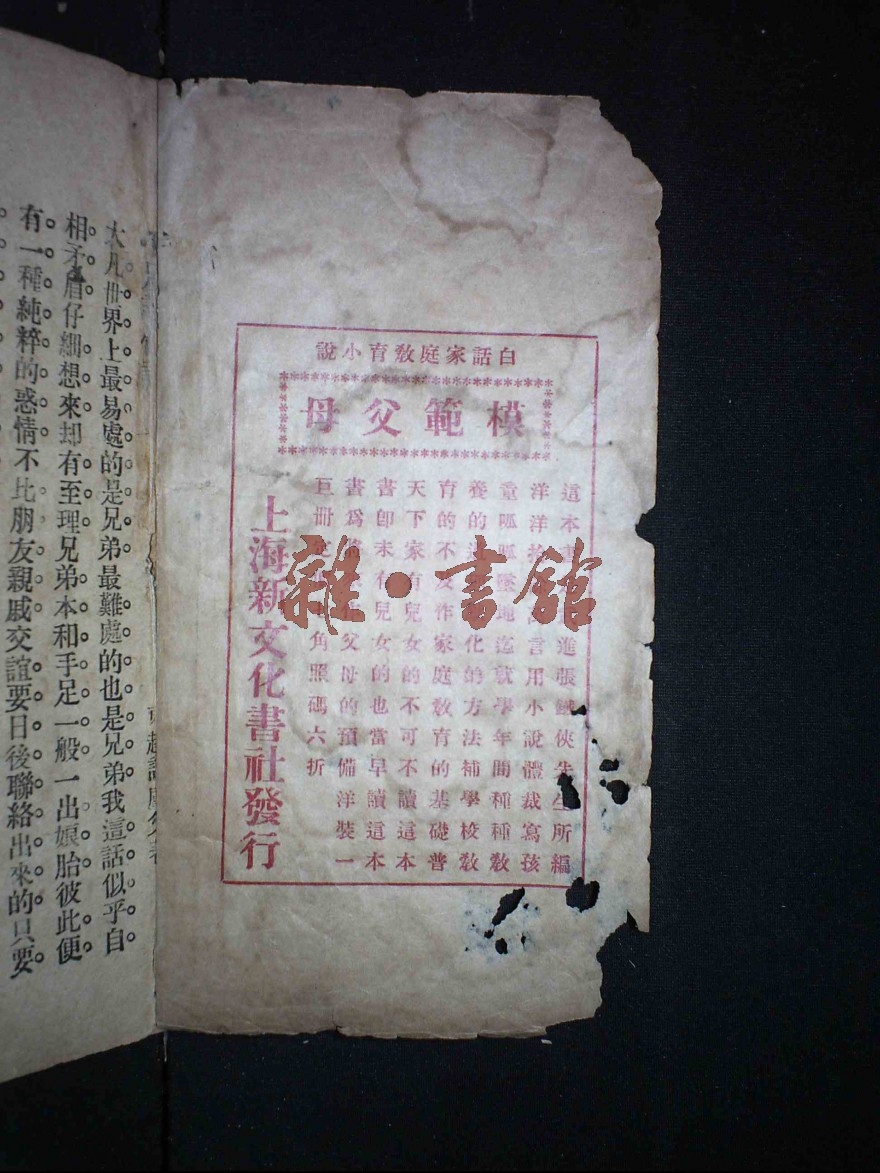 白話家庭教育小說
模範父母
這本書進張鐵俠先生所編
洋洋言用小說體裁寫孩
童呱呱墜地迄就學年間種種教
養的化的方法補學校教
育的不及作家庭教育的基礎普
天下家有兒女的不可不讀這本
書即未有兒女的也當早讀這本
書爲作父母的預備洋裝一
巨冊定角照碼六折
上海新文化書社發行
雜·書館
大凡世界上最易處的是兄弟最難處的也是兄弟我這話似乎自
相矛盾仔細想來却有至理兄弟本和手足一般一出娘胎彼此便
有一種純粹的惑情不比朋友親戚交誼要日後聯絡出來的只要